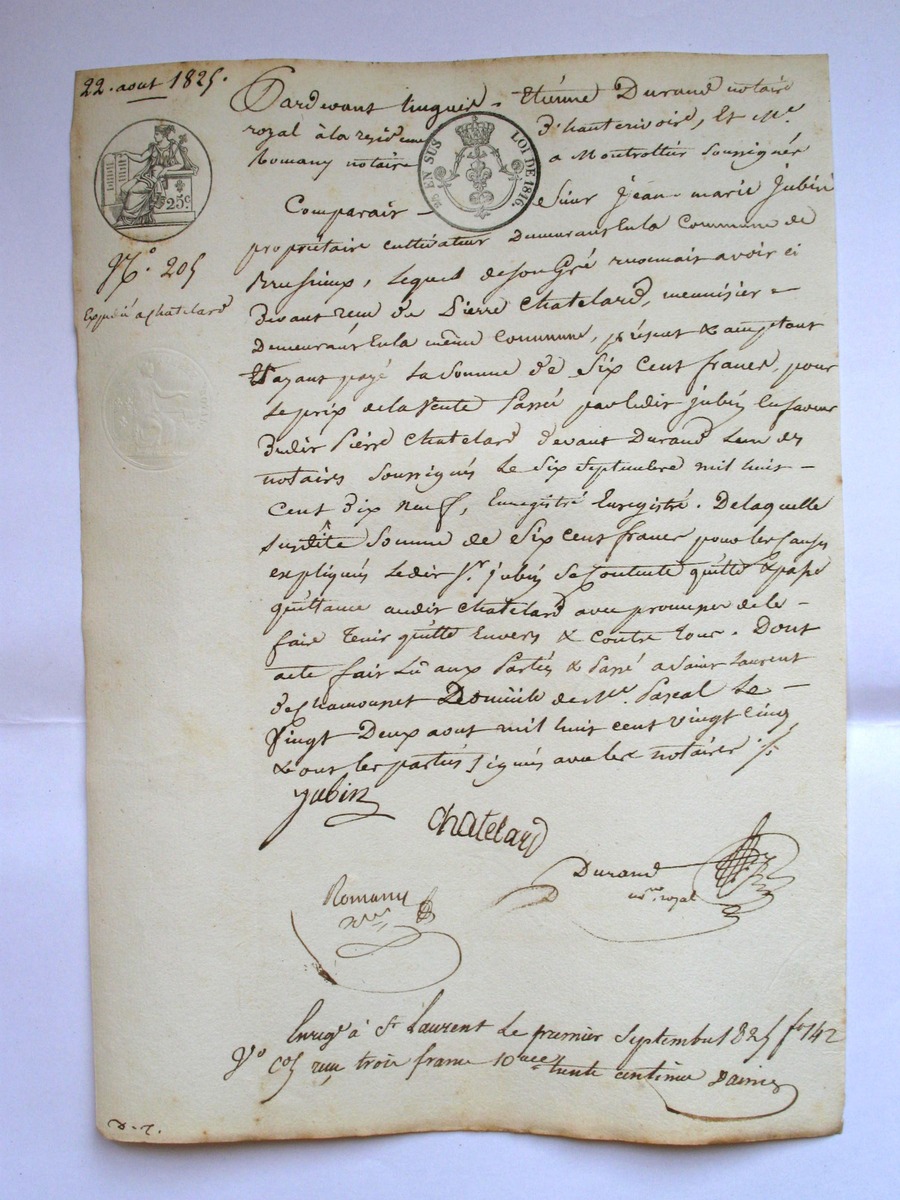 22. aout 1825.
Pardevant Etienne Durand notaire
royal à la residence d'hauterivoire, Et Me.
Romany notaire a Montrottier Soussignés
EN SUS LOI DE 1816.
25c.
Comparait Sieur Jean marie Jubin
No. 205
propriétaire cultivateur Demeurant En la Commune de
Brussieux, Lequel de Son Gré reconnait avoir ci
Expédié a chatelard
Devant reçu de Pierre Chatelard, menuisier
Demeurant En la même Commune, présent & acceptant
ayant payé La Somme de Six Cent francs, pour
Le prix de la Vente Passée par ledit jubin En faveur
dudit Pierre Chatelard devant Durand L'un des
notaires Soussignés Le Six Septembre mil huit
Cent dix neuf, Enregistré Enregistré. De laquelle
susdite Somme de Six cent francs pour les causes
expliquées Ledit Sr. jubin Se Contente quitte & passe
quittance audit Chatelard avec promesse de le
faire Tenir quitte Envers & contre tous. Dont
acte fait Lû aux Parties & Passé a Saint Laurent
de Chamousset Domicile de Me. Pascal Le
Vingt Deux aout mil huit cent vingt Cinq
& ont les parties Signés avec les notaires ./.
Jubin
Chatelard
Durand
nore. royal
Romany
nre
Enregé à St Laurent Le premier Septembre 1825 fo 142
Vo C5 reçu trois francs 10me trente centimes